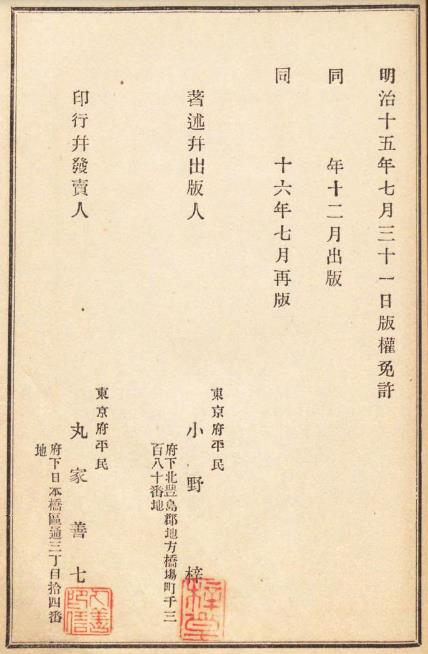 明治十五年七月三十一日版權免許
同　年十二月出版
同　十六年七月再版
著述幷出版人
東京府平民
小野梓
府下北豐島郡地方橋塲町千三
百八十番地
印行幷發賣人
東京府平民
丸家善七
府下日本橋區通三丁目拾四番
地